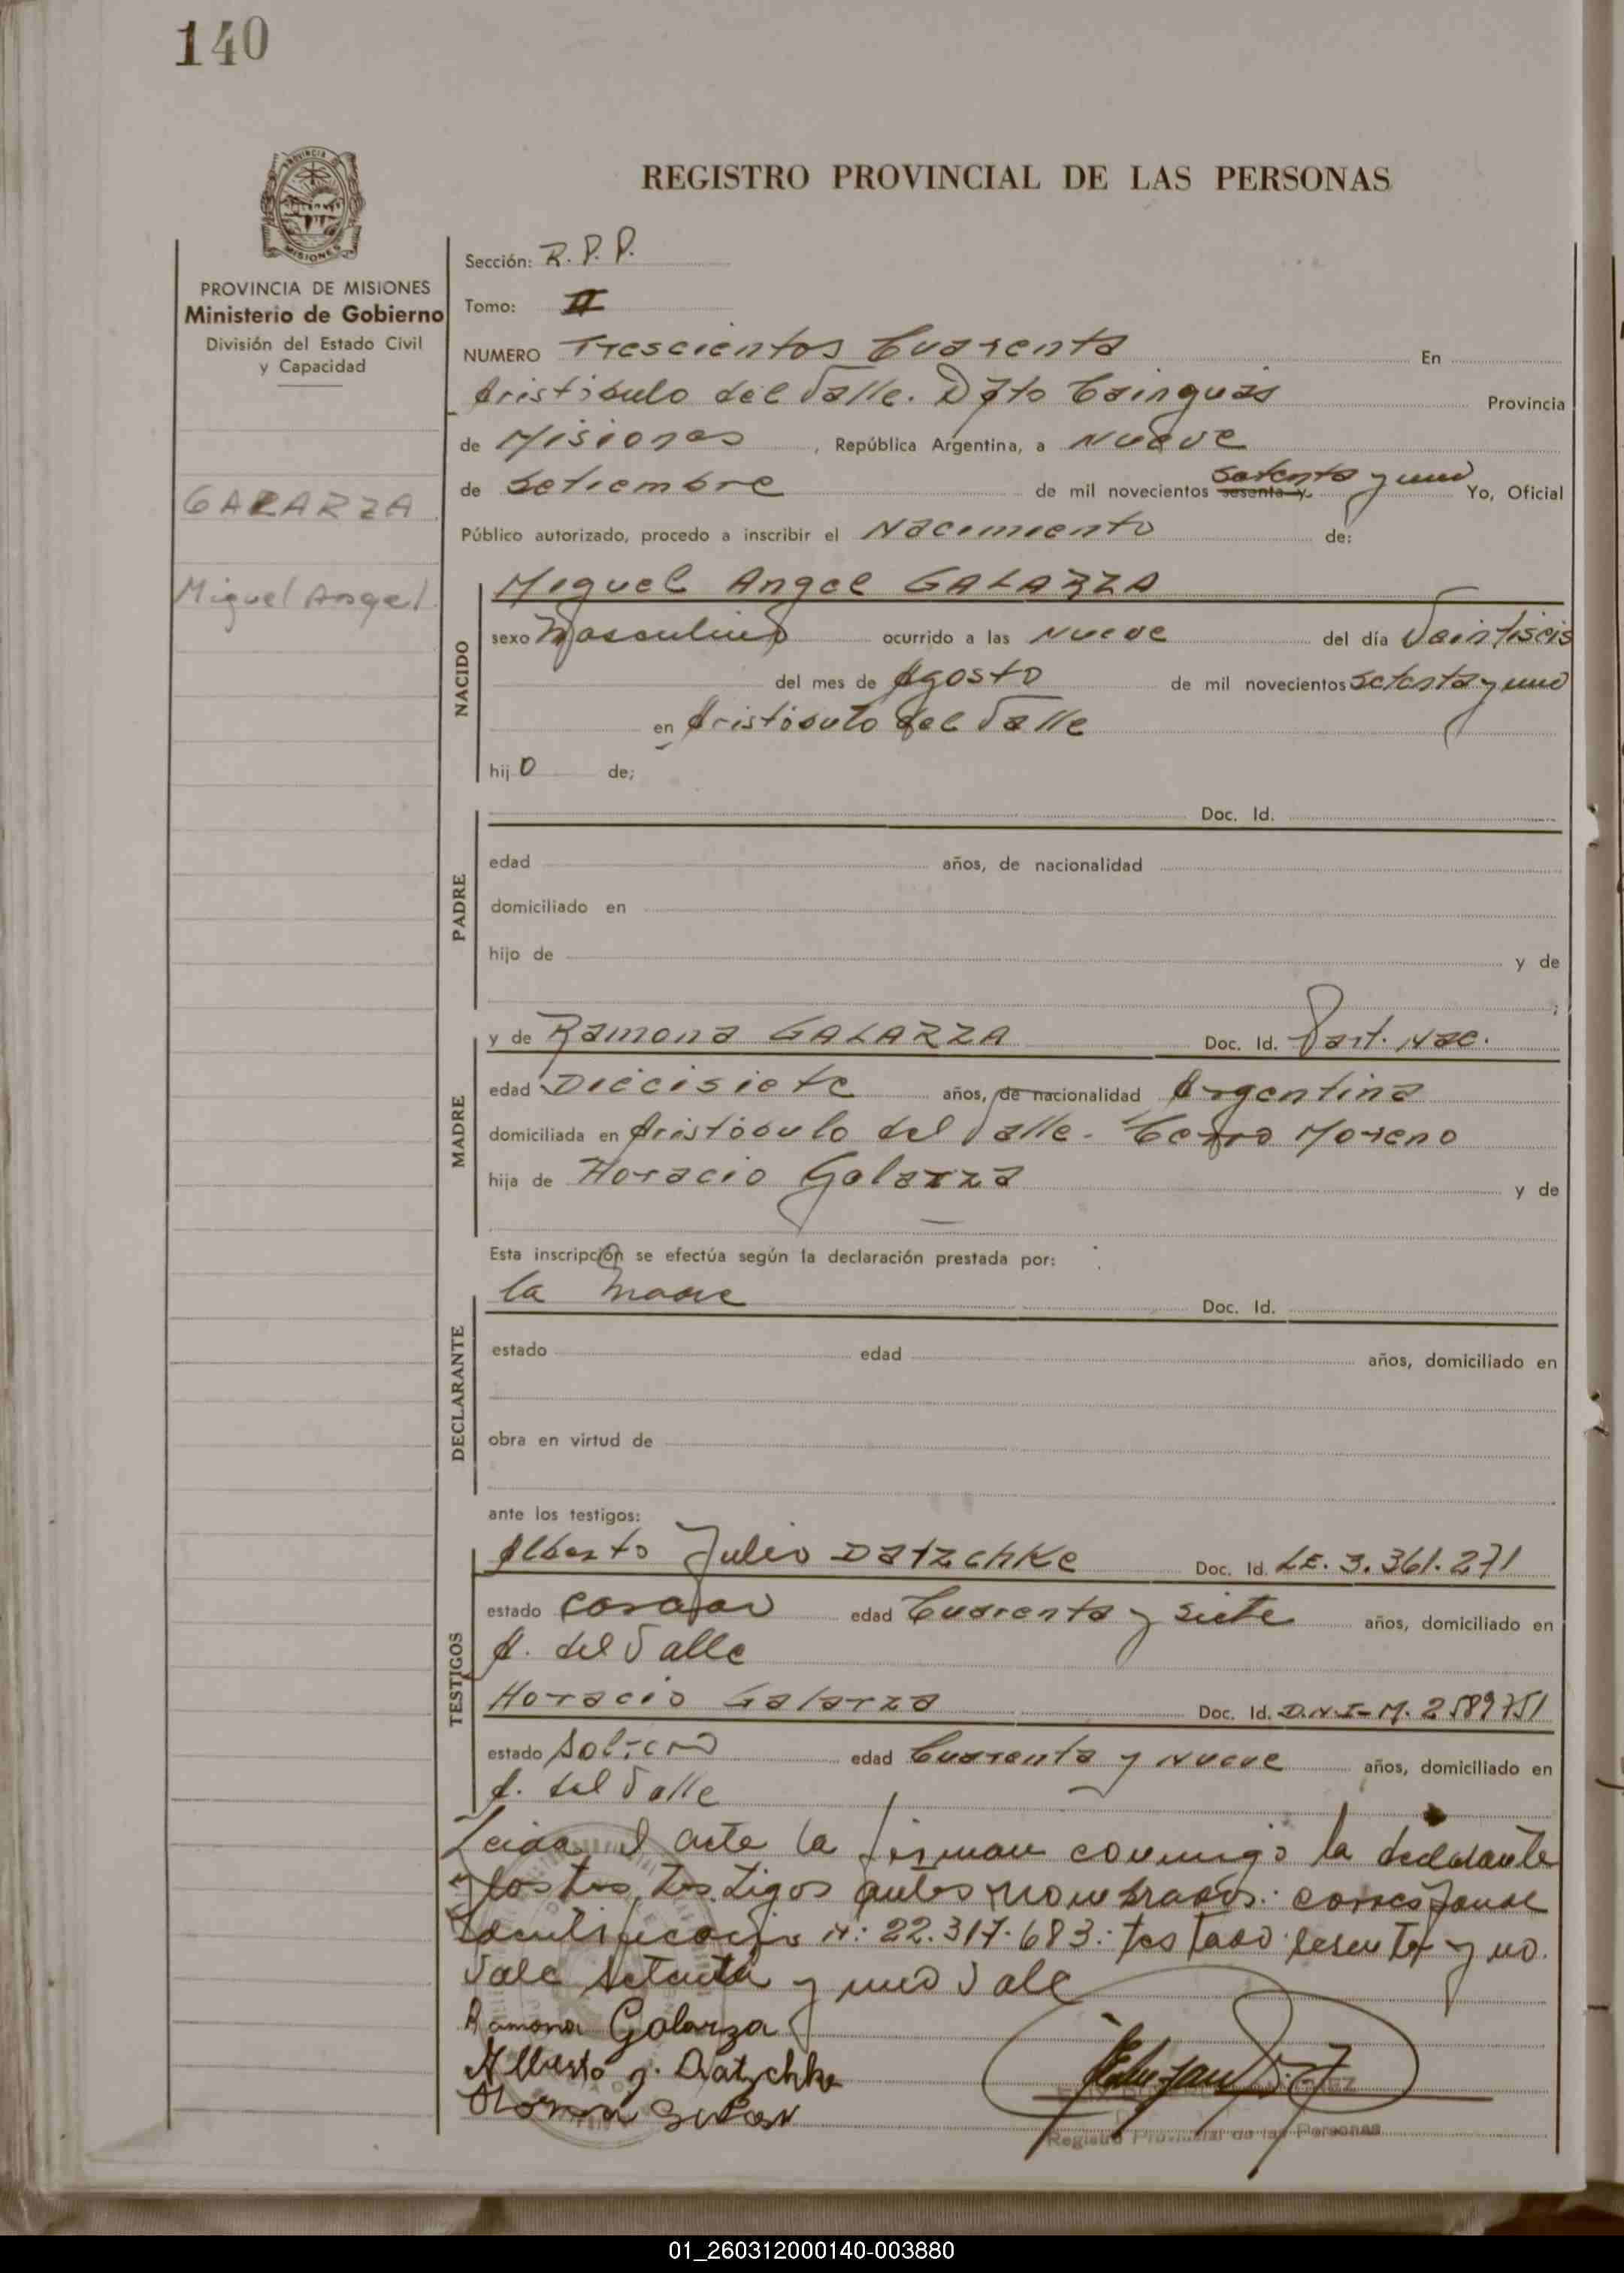 140
REGISTRO PROVINCIAL DE LAS PERSONAS
PROVINCIA DE MISIONES
Ministerio de Gobierno
División del Estado Civil
y Capacidad
GALARZA
Miguel Angel
Sección: R.P.P.
Tomo: II
NUMERO Trescientos Cuarenta En
Aristóbulo del Valle. Dpto Cainguás Provincia
de Misiones, República Argentina, a Nueve
de Setiembre de mil novecientos sesenta y setenta y uno Yo, Oficial
Público autorizado, procedo a inscribir el Nacimiento de:
NACIDO
Miguel Angel GALARZA
sexo Masculino ocurrido a las Nueve del día Veintiseis
del mes de Agosto de mil novecientos setenta y uno
en Aristóbulo del Valle
hij o de;
PADRE
Doc. Id.
edad años, de nacionalidad
domiciliado en
hijo de y de
MADRE
y de Ramona GALARZA Doc. Id. Part. Nac.
edad Diecisiete años, de nacionalidad Argentina
domiciliada en Aristóbulo del Valle - Cerro Moreno
hija de Horacio Galarza y de
Esta inscripción se efectúa según la declaración prestada por:
DECLARANTE
la Madre Doc. Id.
estado edad años, domiciliado en
obra en virtud de
ante los testigos:
TESTIGOS
Alberto Julio Datzchke Doc. Id. L.E. 3.361.271
estado casado edad Cuarenta y siete años, domiciliado en
A. del Valle
Horacio Galarza Doc. Id. D.N.I-M. 2589751
estado Soltero edad Cuarenta y Nueve años, domiciliado en
A. del Valle
Leida el acta la firman conmigo la declarante
y los testigos antes nombrados: corresponde
identificación N: 22.317.683: testado sesenta y no
Vale setenta y uno Vale
Ramona Galarza
Alberto J. Datzchke
Registro Provincial de las Personas
01_260312000140-003880